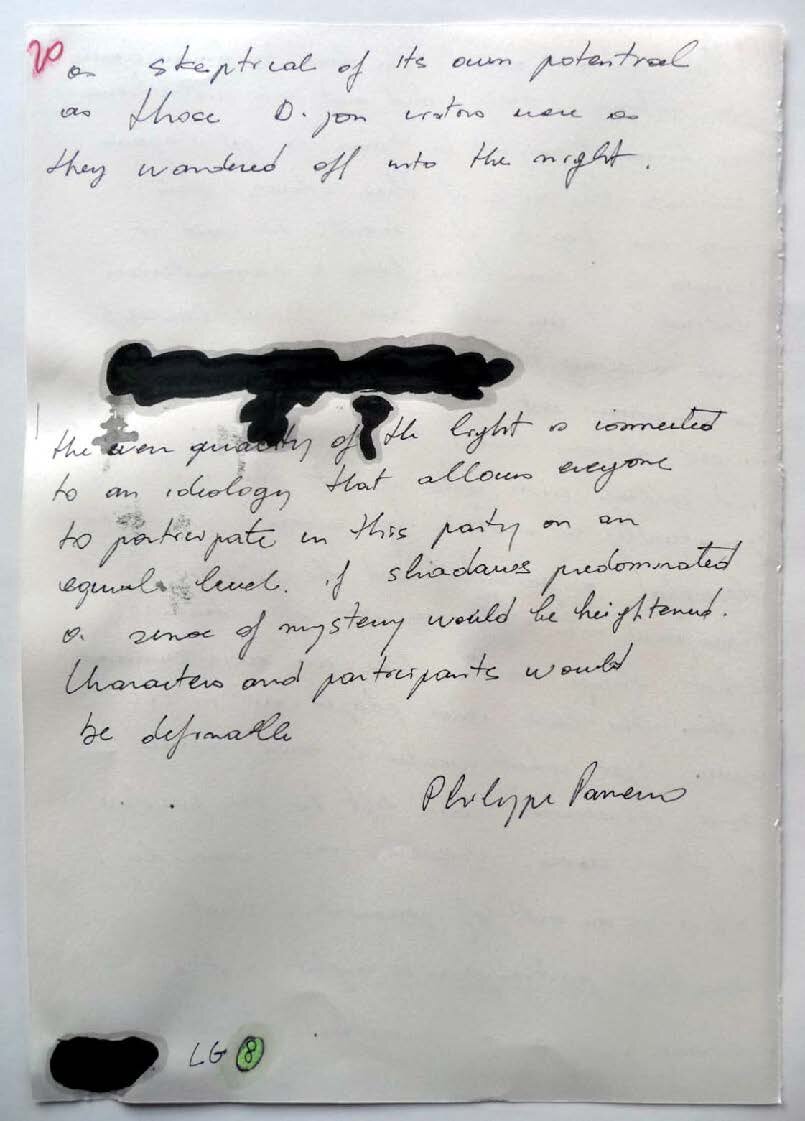 20
as skeptical of its own potential
as those Dijon visitors were as
they wandered off into the night.
the even quality of the light is connected
to an ideology that allows everyone
to participate in this party on an
equal level. if shadows predominated
a sense of mystery would be heightened.
Characters and participants would
be definable
Philippe Parreno
LG 8